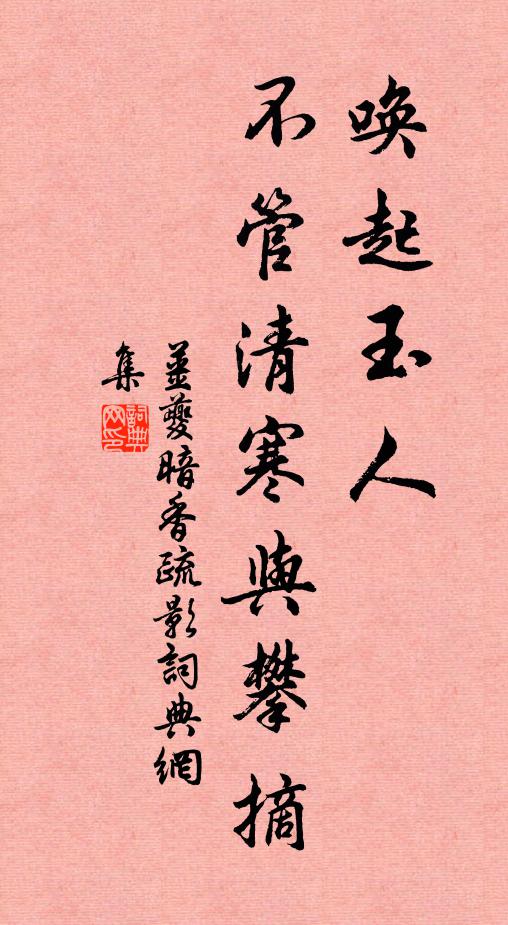 喚起玉人
不管清寒與攀摘
姜夔暗香疏影詞典網
集
詞典
网印